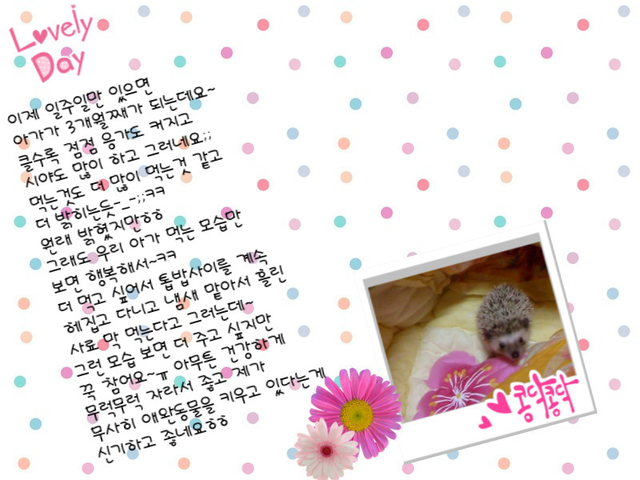 Lovely
Day
이제 일주일만 있으면
아가가 3개월째가 되는데요~
클수록 점점 응가도 커지고
시야도 많이 하고 그러네요;;
먹는것도 더 많이 먹는것 같고
더 밝히는듯-_-;;ㅋㅋ
원래 밝혔지만ㅎㅎ
그래도 우리 아가 먹는 모습만
보면 행복해서~ㅋㅋ
더 먹고 싶어서 톱밥사이를 계속
헤집고 다니고 냄새 맡아서 흘린
사료 막 먹는다고 그러는데~
그런 모습 보면 더 주고 싶지만
꾹 참어요~ㅠ 아무튼 건강하게
무럭무럭 자라서 좋고 제가
무사히 애완동물을 키우고 있다는게
신기하고 좋네요ㅎㅎ
콩닥콩닥